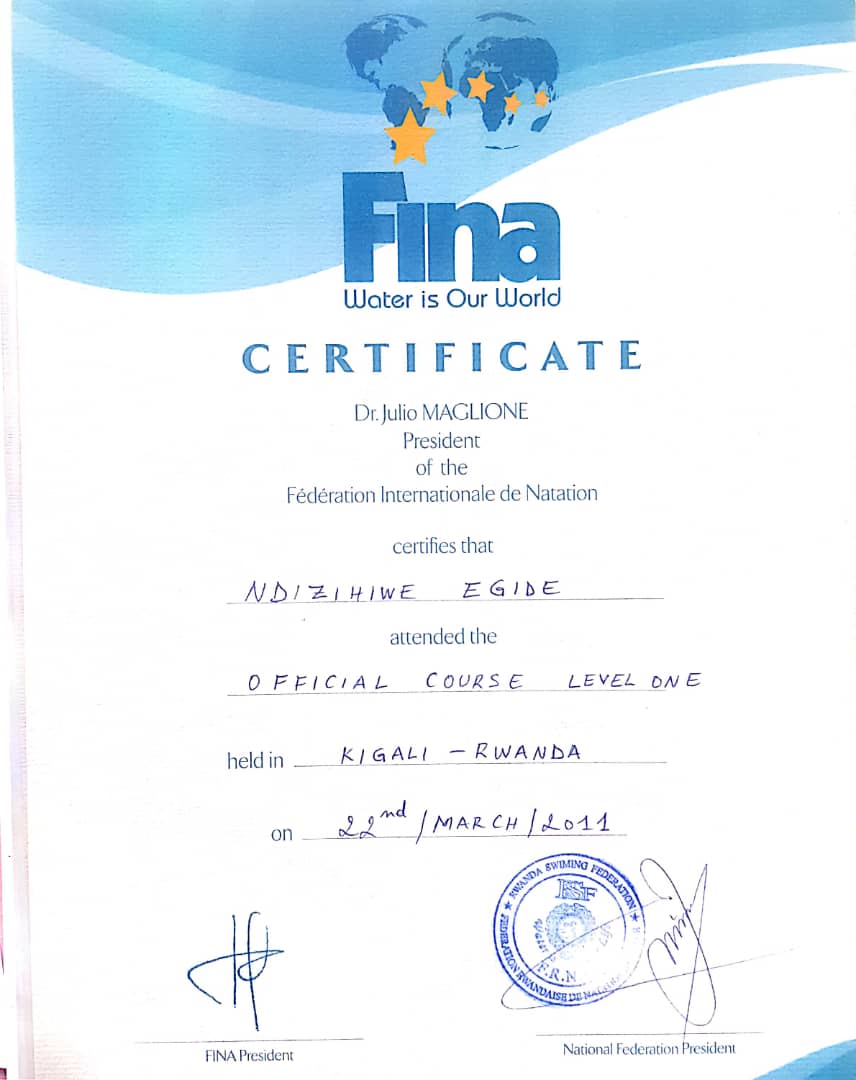 Fina
Water is Our World
CERTIFICATE
Dr. Julio MAGLIONE
President
of the
Fédération Internationale de Natation
certifies that
NDIZIHIWE EGIDE
attended the
OFFICIAL COURSE LEVEL ONE
held in KIGALI - RWANDA
on 22nd/MARCH/2011
RWANDA SWIMING FEDERATION
RSF
F.R.N
FINA President
National Federation President